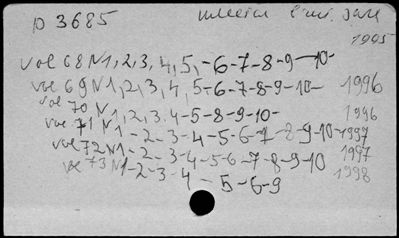 D 3685
1995
vol 68 N1, 2, 3, 4, 5, -6-7-8-9-10-
vol 69 N1, 2, 3, 4, 5-6-7-8-9-10- 1996
vol 70 N1, 2, 3, 4-5-8-9-10- 1996
vol 71 N1-2-3-4-5-6-7-8-9-10- 1997
vol 72 N1-2-3-4-5-6-7-8-9-10 1997
vol 73 N1-2-3-4-5-6-9 1998